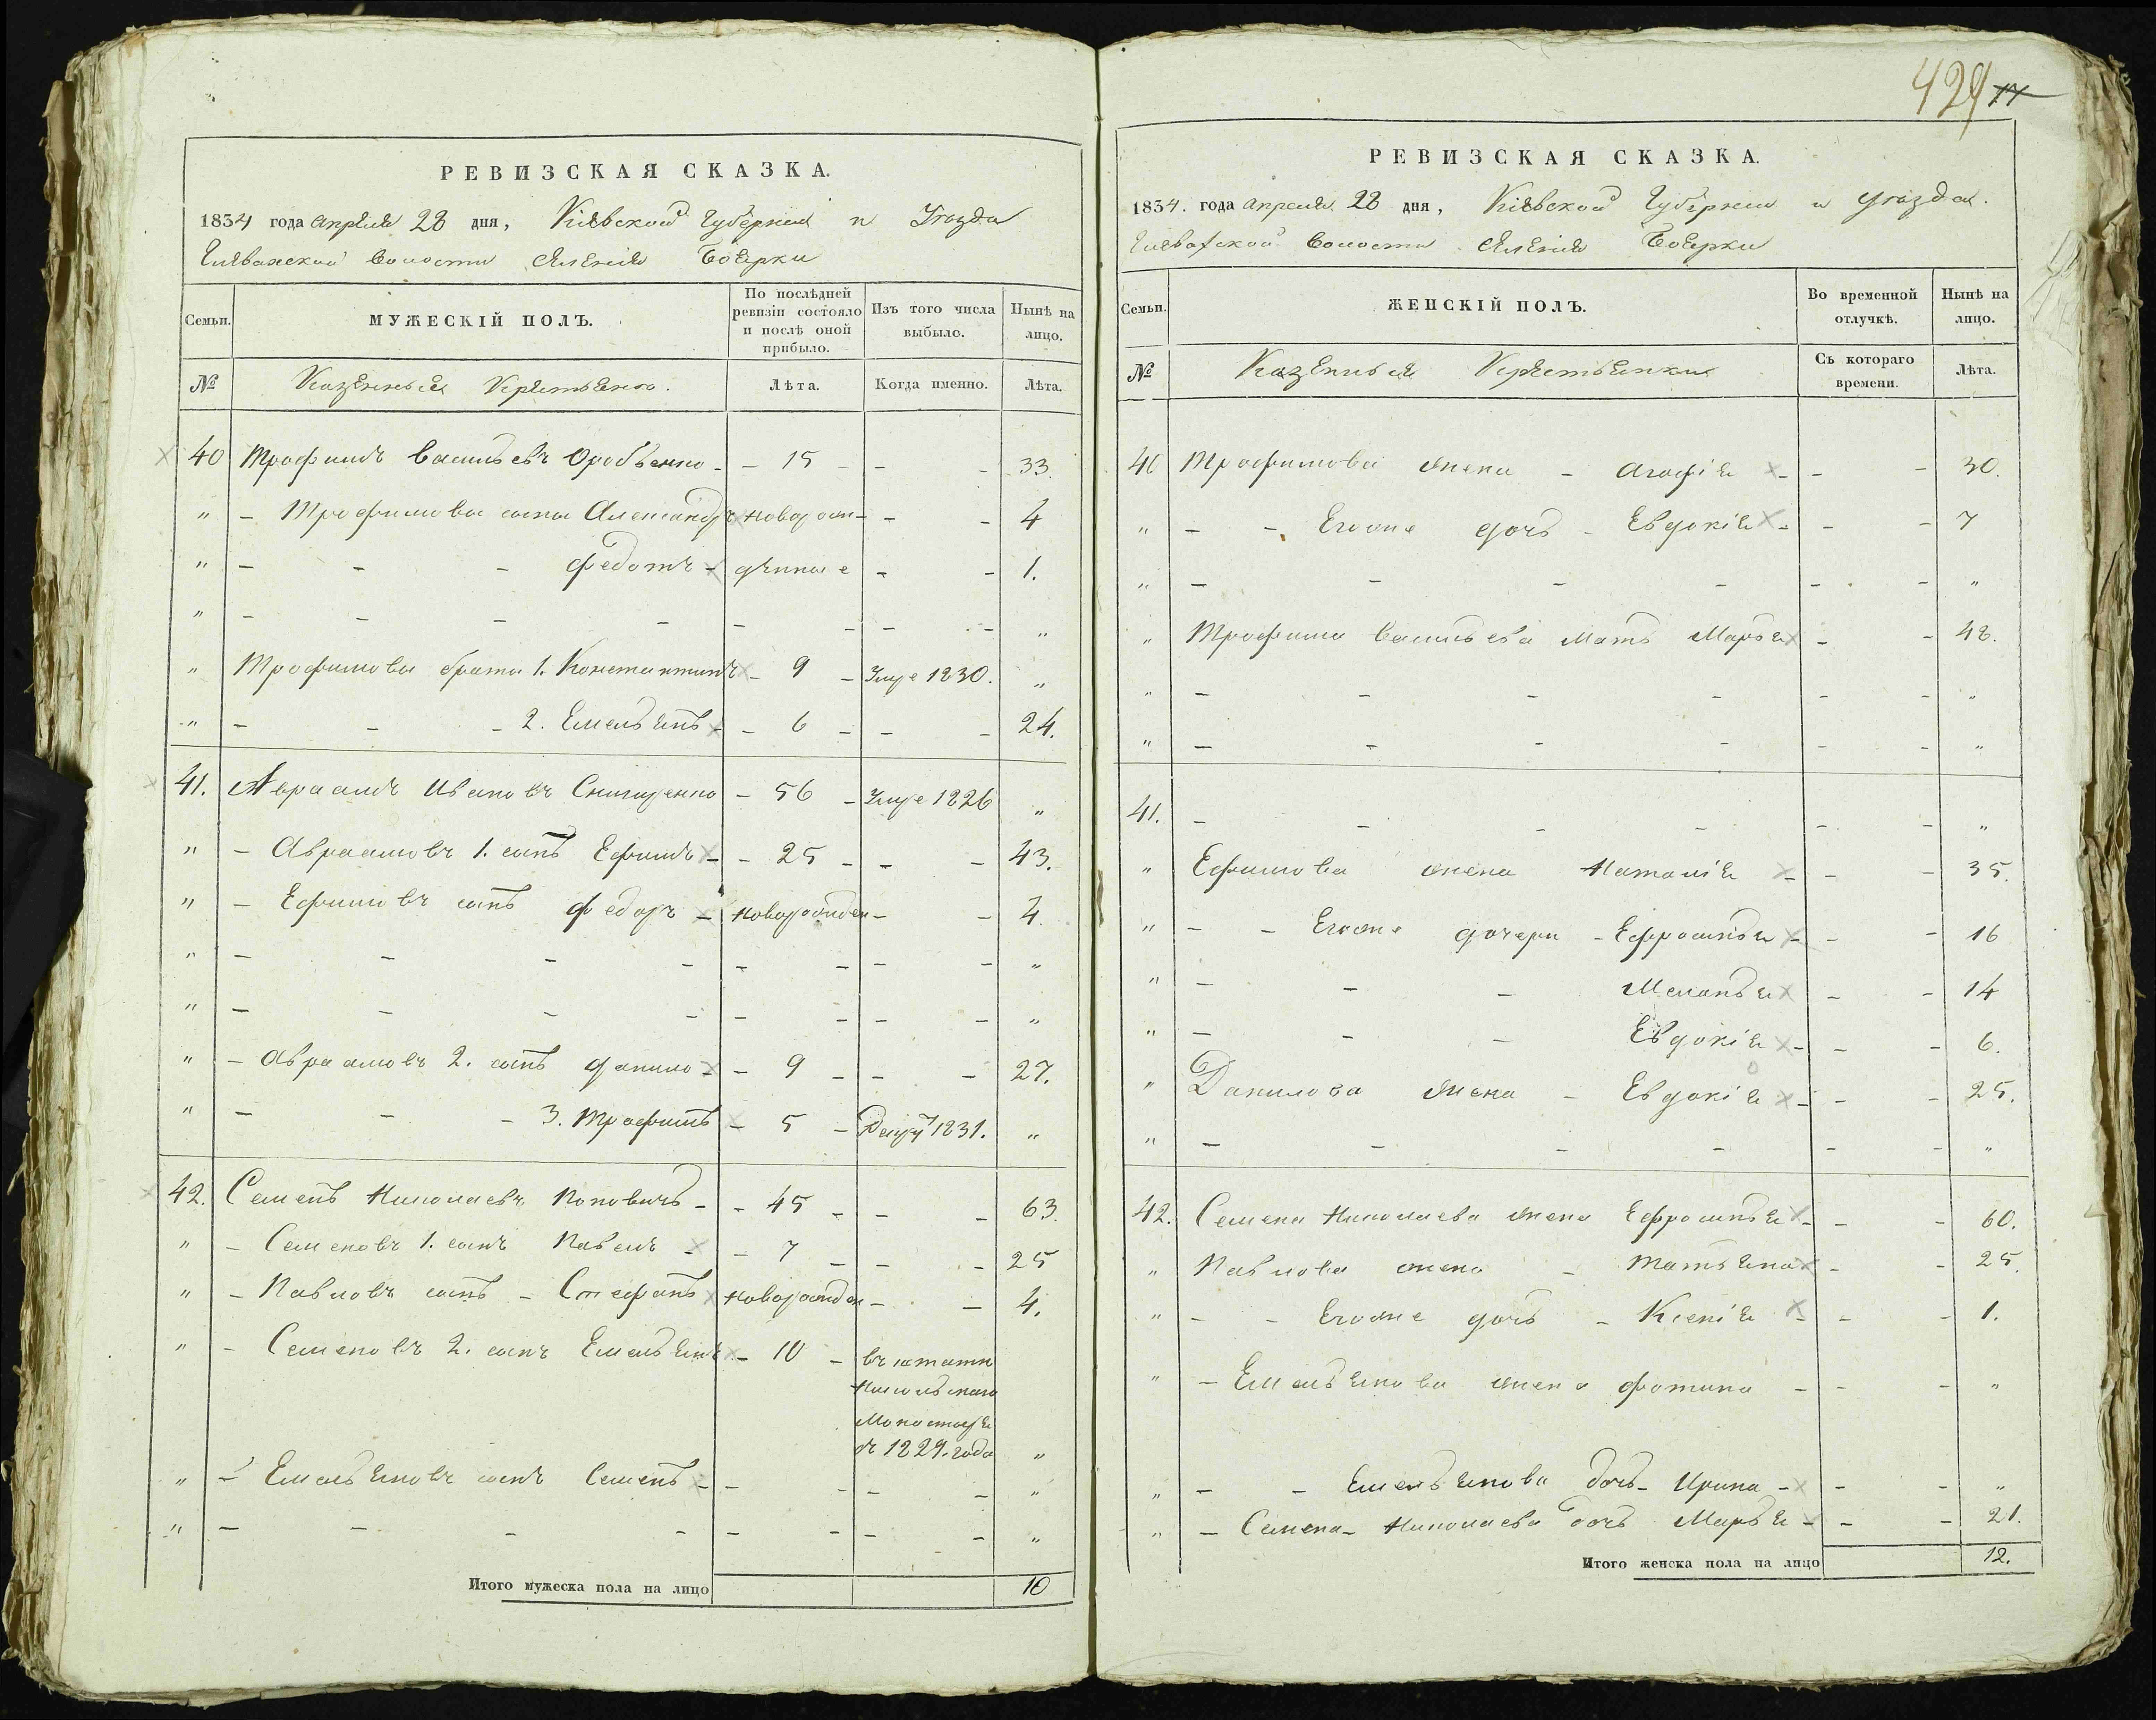 РЕВИЗСКАЯ СКАЗКА.
1834 года апреля 28 дня, Кіевской Губерніи и Уѣзда
волости селенія Боерки
Семьи. МУЖЕСКІЙ ПОЛЪ. По послѣдней ревизіи состояло и послѣ оной прибыло. Изъ того числа выбыло. Нынѣ на лицо.
№ Казенные Крестьяне. Лѣта. Когда именно. Лѣта.
40 Трофимъ Васильевъ - - 15 - - - 33.
" - Трофимовы сыны Александръ новорож- - - 4
" - - - Федотъ - денные - - 1.
" - - - - - - - - "
" Трофимовы браты 1. Константинъ - 9 - Умре 1830. "
" - - - 2. Емельянъ - - 6 - - - 24.
41. Авраамъ Ивановъ Снигиренко - 56 - Умре 1826 "
" - Авраамовъ 1. сынъ Ефимъ - - 25 - - - 43.
" - Ефимовъ сынъ Федоръ - новорожден - - 4
" - - - - - - - - "
" - - - - - - - - "
" - Авраамовъ 2. сынъ Данило - - 9 - - - 27.
" - - - 3. Трофимъ - 5 - 1831. "
42. Семенъ Николаевъ Поповичъ - - 45 - - - 63.
" - Семеновъ 1. сынъ Павелъ - - 7 - - - 25
" - Павловъ сынъ - Стефанъ новорожден - - 4.
" - Семеновъ 2. сынъ Емельянъ - 10 - въ
Монастыря
съ 1829. года "
" - Емельяновъ сынъ Семенъ - - - - - "
" - - - - - - - - "
Итого мужеска пола на лицо 10
424 17
РЕВИЗСКАЯ СКАЗКА.
1834. года апреля 28 дня, Кіевской Губерніи и уѣзда.
волости селенія Боерки
Семьи. ЖЕНСКІЙ ПОЛЪ. Во временной отлучкѣ. Нынѣ на лицо.
№ Казенные Крестьянки Съ котораго времени. Лѣта.
40 Трофимова жена - Агафія - - - 30.
" - - Егоже дочь - Евдокія - - - 7
" - - - - - - "
" Трофима Васильева мать Марья - - 48.
" - - - - - - "
" - - - - - - "
41. - - - - - - "
" Ефимова жена Наталія - - - 35.
" - - Егоже дочери - Ефросинья - - - 16
" - - - Меланья - - 14
" - - - Евдокія - - - 6.
" Данилова жена - Евдокія - - - 25.
" - - - - - - "
42. Семена Николаева жена Ефросинья - - - 60.
" Павлова жена - Татьяна - - 25.
" - - Егоже дочь - Ксенія - - - 1.
" - Емельянова жена Фотина - - - "
" - - Емельянова дочь - Ирина - - - "
" - Семена - Николаева дочь Марья - - - 21.
Итого женска пола на лицо 12.